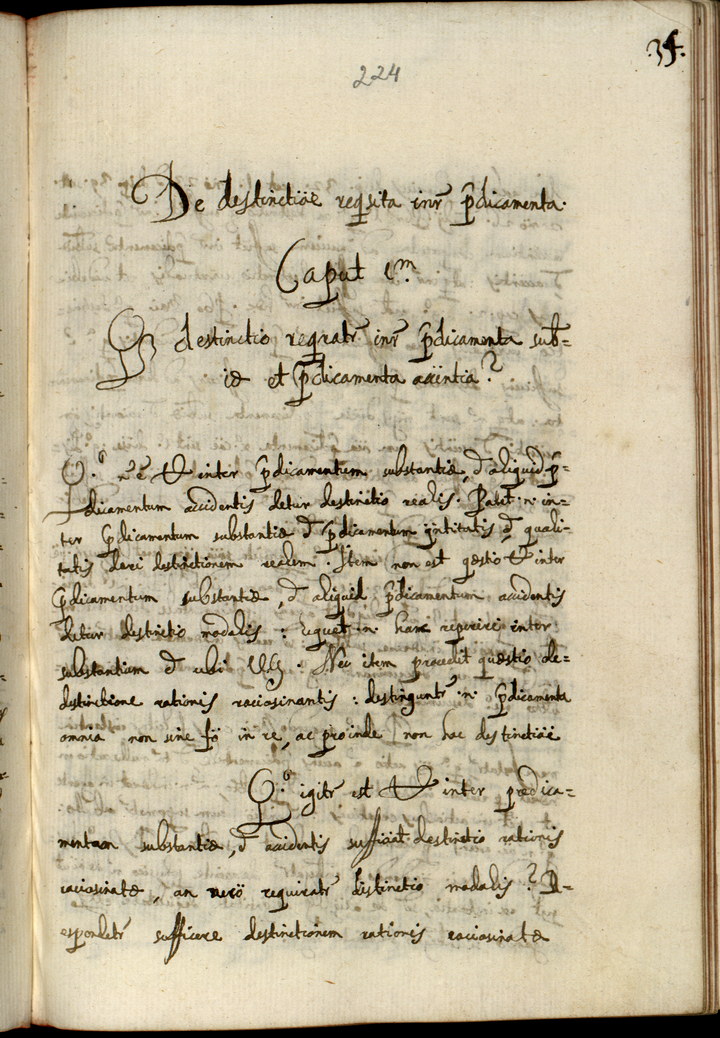 35.
224
De destinctiõe reqisita inr̃ p̃dicamenta.
Caput 1.m
destinctio reqratr̃ inr̃ p̃dicamenta subt̃=
iæ et p̃dicamenta accintia?
Q.o nõ ẽ inter p̃dicamentum substantiæ, et aliquid p̃=
dicamentum accidentis detur destinctio realis. Patet .n. in=
ter p̃dicamentum substantiæ et p̃dicamentum qntitatis et quali=
tatis dari destinctionem realem. Item non est qæstio inter
p̃dicamentum substantiæ, et aliquid p̃dicamentum accidentis
detur destinctio modalis: .n. hanc reperiri inter
substantiam et ubi. Nec item procedit quæstio de=
destinctione rationis raciosinantis: destinguntr̃ .n. p̃dicamenta
omnia non sine fõ in re, ac proinde non hac destinctiõe
Q.o igitr̃ est inter prædica=
mentum substantiæ, et accidentis sufficiat destinctio rationis
raciosinatæ, an verõ requiratr̃ distinctio modalis? R=
espondetr̃ sufficere destinctionem rationis raciosinatæ